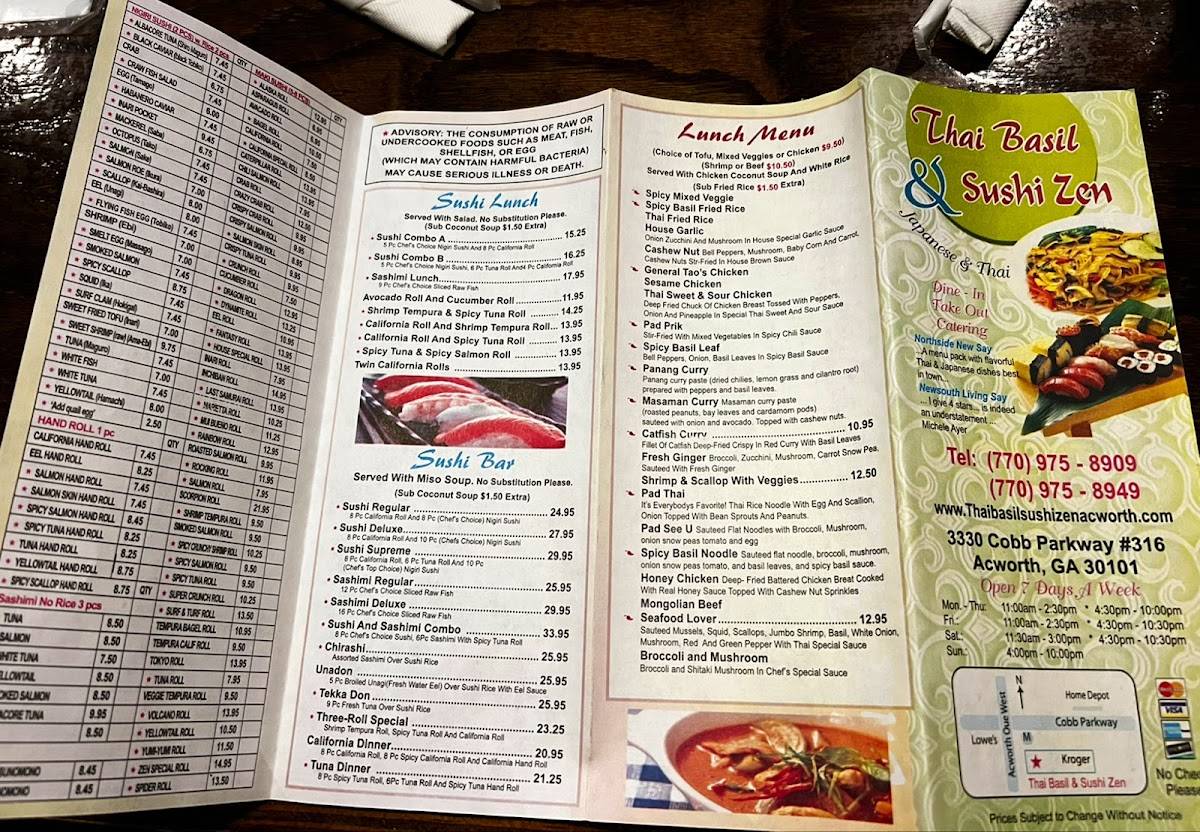 NIGIRI SUSHI (2 PCS) w. Rice 2 pcs QTY
★ ALBACORE TUNA (Shiro Maguro) 7.45
★ BLACK CAVIAR (black Tobiko) 7.45
CRAB 6.75
★ CRAW FISH SALAD 7.45
EGG (Tamago) 6.00
★ HABANERO CAVIAR 7.45
INARI POCKET 6.00
★ MACKEREL (Saba)
OCTOPUS (Tako)
★ SALMON (Sake)
★ SALMON ROE (Ikura)
★ SCALLOP (Kai-Bashira)
EEL (Unagi)
★ FLYING FISH EGG (Tobiko)
SHRIMP (Ebi)
★ SMELT EGG (Massago)
SMOKED SALMON
★ SPICY SCALLOP
★ SQUID (Ika)
★ SURF CLAM (Hokigai)
SWEET FRIED TOFU (Inari)
★ SWEET SHRIMP (raw) (Ama-Ebi)
★ TUNA (Maguro)
★ WHITE FISH
★ WHITE TUNA
★ YELLOWTAIL (Hamachi) 8.00
★ *Add quail egg* 2.50
HAND ROLL 1 pc QTY
CALIFORNIA HAND ROLL 7.45
EEL HAND ROLL 8.25
★ SALMON HAND ROLL 7.45
★ SALMON SKIN HAND ROLL 7.45
★ SPICY SALMON HAND ROLL 8.45
★ SPICY TUNA HAND ROLL 8.25
★ TUNA HAND ROLL 8.25
★ YELLOWTAIL HAND ROLL 8.75
★ SPICY SCALLOP HAND ROLL 8.75
Sashimi No Rice 3 pcs QTY
TUNA 8.50
SALMON 8.50
WHITE TUNA 7.50
YELLOWTAIL 8.50
SMOKED SALMON 8.50
ALBACORE TUNA 9.95
8.50
8.45
8.45
MAKI SUSHI (5-8 PCS) QTY
★ ALASKA ROLL 12.95
ASPARAGUS ROLL 6.95
AVACADO ROLL
★ BAGEL ROLL
CALIFORNIA ROLL
★ CALIFORNIA SPECIAL ROLL
CATERPILLAR ROLL
CHILI SALMON ROLL
CRAB ROLL
CRAZY CRAB ROLL
CRISPY CRAB ROLL
CRISPY SALMON ROLL
★ SALMON SKIN ROLL
CRISPY TUNA ROLL
★ CRUNCH ROLL
CUCUMBER ROLL
★ DRAGON ROLL
★ DYNAMITE ROLL
EEL ROLL
★ FANTASY ROLL
★ HOUSE SPECIAL ROLL
INARI ROLL
INCHIBAN ROLL
★ LAST SAMURAI ROLL
★ MARIETTA ROLL
★ MUI BUENO ROLL
★ RAINBOW ROLL
ROASTED SALMON ROLL
★ ROCKING ROLL
★ SALMON ROLL 7.95
SCORPION ROLL 21.95
★ SHRIMP TEMPURA ROLL 9.50
SMOKED SALMON ROLL
★ SPICY CRUNCHY SHRIMP ROLL 10.25
★ SPICY SALMON ROLL 9.50
★ SPICY TUNA ROLL 9.50
★ SUPER CRUNCH ROLL 10.25
★ SURF & TURF ROLL 13.50
TEMPURA BAGEL ROLL 10.95
TEMPURA CALIF ROLL 9.50
TOKYO ROLL 13.95
★ TUNA ROLL 7.95
VEGGIE TEMPURA ROLL 9.50
★ VOLCANO ROLL 13.95
★ YELLOWTAIL ROLL 10.50
★ YUM-YUM ROLL 11.50
★ ZEN SPECIAL ROLL 14.95
★ SPIDER ROLL 13.50
★ ADVISORY: THE CONSUMPTION OF RAW OR
UNDERCOOKED FOODS SUCH AS MEAT, FISH,
SHELLFISH, OR EGG
(WHICH MAY CONTAIN HARMFUL BACTERIA)
MAY CAUSE SERIOUS ILLNESS OR DEATH.
Sushi Lunch
Served With Salad. No Substitution Please.
(Sub Coconut Soup $1.50 Extra)
• Sushi Combo A 15.25
5 Pc Chef's Choice Nigiri Sushi And 8 Pc California Roll
• Sushi Combo B 16.25
5 Pc Chef's Choice Nigiri Sushi, 6 Pc Tuna Roll And4 Pc California Roll
• Sashimi Lunch 17.95
9 Pc Chef's Choice Sliced Raw Fish
Avocado Roll And Cucumber Roll 11.95
• Shrimp Tempura & Spicy Tuna Roll 14.25
• California Roll And Shrimp Tempura Roll... 13.95
• California Roll And Spicy Tuna Roll 13.95
• Spicy Tuna & Spicy Salmon Roll 13.95
Twin California Rolls 13.95
Sushi Bar
Served With Miso Soup. No Substitution Please.
(Sub Coconut Soup $1.50 Extra)
• Sushi Regular 24.95
8 Pc California Roll And 8 Pc (Chef's Choice) Nigiri Sushi
• Sushi Deluxe 27.95
8 Pc California Roll And 10 Pc (Chefs Choice) Nigiri Sushi
• Sushi Supreme 29.95
8 Pc California Roll, 6 Pc Tuna Roll And 10 Pc
(Chef's Top Choice) Nigiri Sushi
• Sashimi Regular 25.95
12 Pc Chef's Choice Sliced Raw Fish
• Sashimi Deluxe 29.95
16 Pc Chef's Choice Sliced Raw Fish
• Sushi And Sashimi Combo 33.95
8 Pc Chef's Choice Sushi, 6Pc Sashimi With Spicy Tuna Roll
• Chirashi 25.95
Assorted Sashimi Over Sushi Rice
Unadon 25.95
5 Pc Broiled Unagi(Fresh Water Eel) Over Sushi Rice With Eel Sauce
• Tekka Don 25.95
9 Pc Fresh Tuna Over Sushi Rice
• Three-Roll Special 23.25
Shrimp Tempura Roll, Spicy Tuna Roll And California Roll
California Dinner 20.95
8 Pc California Roll, 8 Pc Spicy California Roll And California Hand Roll
• Tuna Dinner 21.25
8 Pc Spicy Tuna Roll, 6Pc Tuna Roll And Spicy Tuna Hand Roll
Lunch Menu
(Choice of Tofu, Mixed Veggies or Chicken $9.50)
(Shrimp or Beef $10.50)
Served With Chicken Coconut Soup And White Rice
(Sub Fried Rice $1.50 Extra)
Spicy Mixed Veggie
Spicy Basil Fried Rice
Thai Fried Rice
House Garlic
Onion Zucchini And Mushroom In House Special Garlic Sauce
Cashew Nut Bell Peppers, Mushroom, Baby Corn And Carrot,
Cashew Nuts Str-Fried In House Brown Sauce
General Tao's Chicken
Sesame Chicken
Thai Sweet & Sour Chicken
Deep Fried Chuck Of Chicken Breast Tossed With Peppers,
Onion And Pineapple In Special Thai Sweet And Sour Sauce
Pad Prik
Stir-Fried With Mixed Vegetables In Spicy Chili Sauce
Spicy Basil Leaf
Bell Peppers, Onion, Basil Leaves In Spicy Basil Sauce
Panang Curry
Panang curry paste (dried chilies, lemon grass and cilantro root)
prepared with peppers and basil leaves.
Masaman Curry Masamam curry paste
(roasted peanuts, bay leaves and cardamom pods)
sauteed with onion and avocado. Topped with cashew nuts.
Catfish Curry 10.95
Fillet Of Catfish Deep-Fried Crispy In Red Curry With Basil Leaves
Fresh Ginger Broccoli, Zucchini, Mushroom, Carrot Snow Pea,
Sauteed With Fresh Ginger
Shrimp & Scallop With Veggies 12.50
Pad Thai
It's Everybodys Favorite! Thai Rice Noodle With Egg And Scallion,
Onion Topped With Bean Sprouts And Peanuts.
Pad See U Sauteed Flat Noodles with Broccoli, Mushroom,
onion snow peas tomato and egg
Spicy Basil Noodle Sauteed flat noodle, broccoli, mushroom,
onion snow peas tomato, and basil leaves, and spicy basil sauce.
Honey Chicken Deep- Fried Battered Chicken Breat Cooked
With Real Honey Sauce Topped With Cashew Nut Sprinkles
Mongolian Beef
Seafood Lover 12.95
Sauteed Mussels, Squid, Scallops, Jumbo Shrimp, Basil, White Onion,
Mushroom, Red And Green Pepper With Thai Special Sauce
Broccoli and Mushroom
Broccoli and Shitaki Mushroom In Chef's Special Sauce
Thai Basil
& Sushi Zen
Japanese & Thai
Dine - In
Take Out
Catering
Northside New Say
...A menu pack with flavorful
Thai & Japanese dishes best
in town...
Newsouth Living Say
... I give 4 stars... is indeed
an understatement ...
Michele Ayer
Tel: (770) 975 - 8909
(770) 975 - 8949
www.Thaibasilsushizenacworth.com
3330 Cobb Parkway #316
Acworth, GA 30101
Open 7 Days A Week
Mon. - Thu: 11:00am - 2:30pm * 4:30pm - 10:00pm
Fri.: 11:00am - 2:30pm * 4:30pm - 10:30pm
Sat.: 11:30am - 3:00pm * 4:30pm - 10:30pm
Sun.: 4:00pm - 10:00pm
N
Home Depot
Acworth Oue West
Cobb Parkway
Lowe's
M
★ Kroger
Thai Basil & Sushi Zen
MasterCard
VISA
No Che
Please
Prices Subject to Change Without Notice